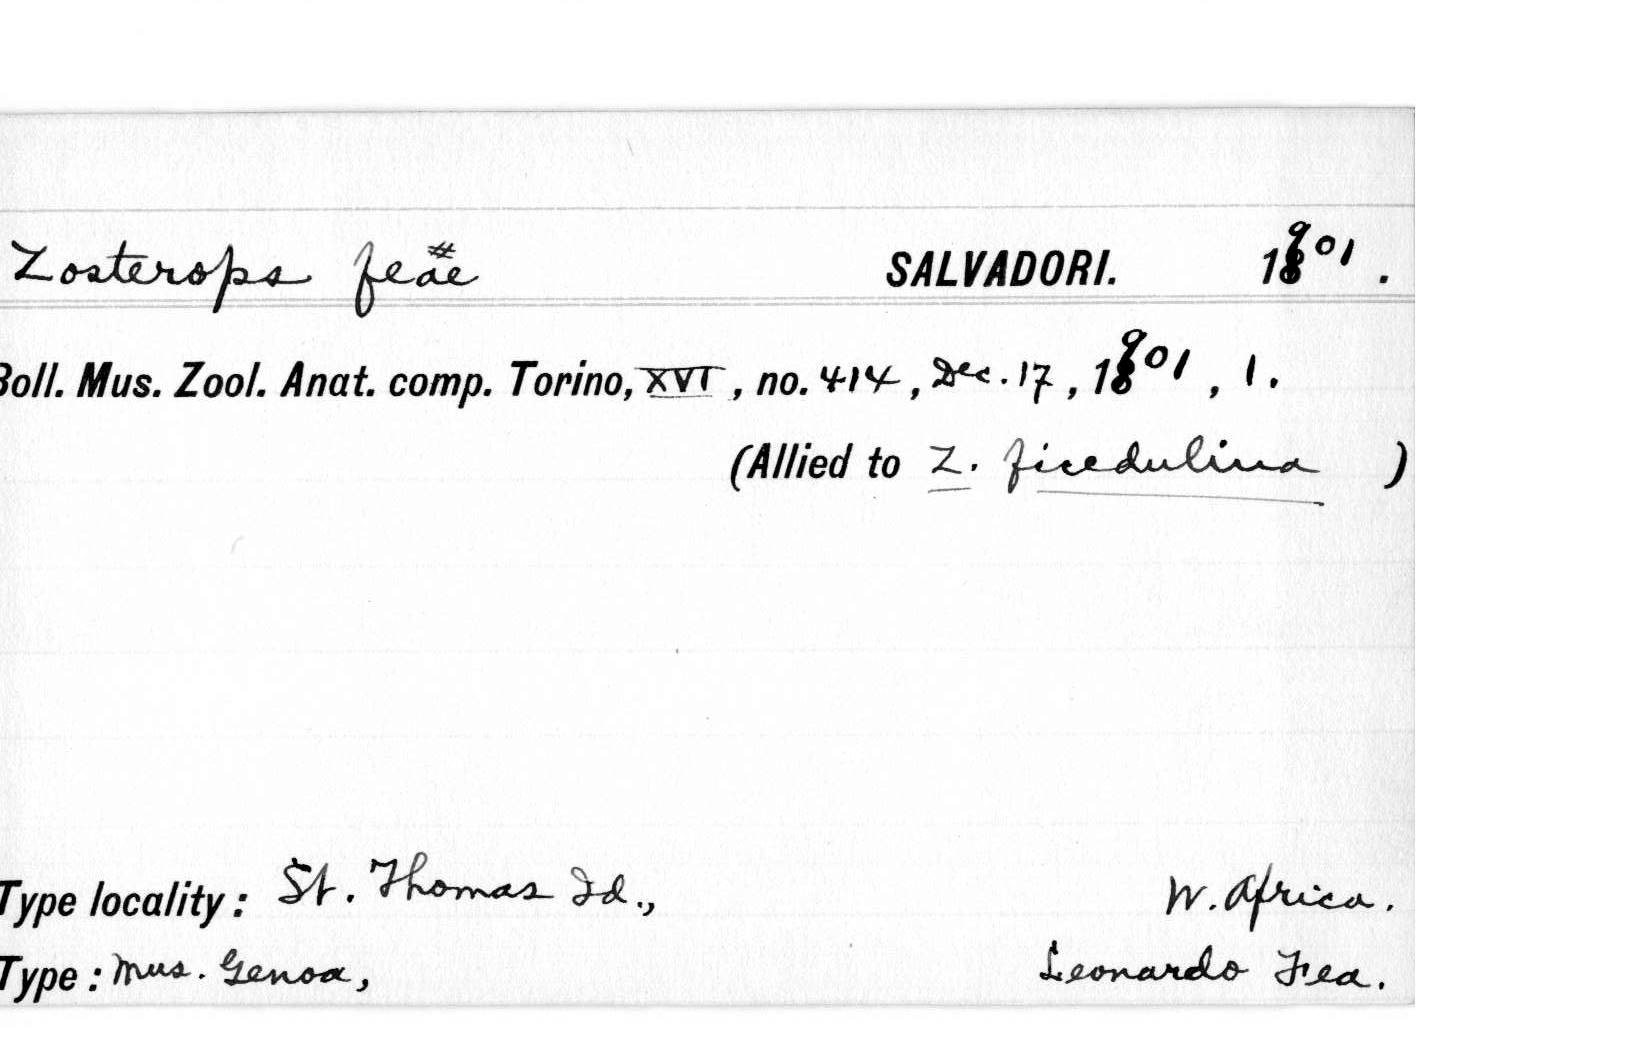 Zosterops feae SALVADORI. 1901.
Boll. Mus. Zool. Anat. comp. Torino, XVI, no. 414, Dec. 17, 1901, 1.
(Allied to Z. ficedulina )
Type locality: St. Thomas Id., W. Africa.
Type: Mus. Genoa, Leonardo Fea.